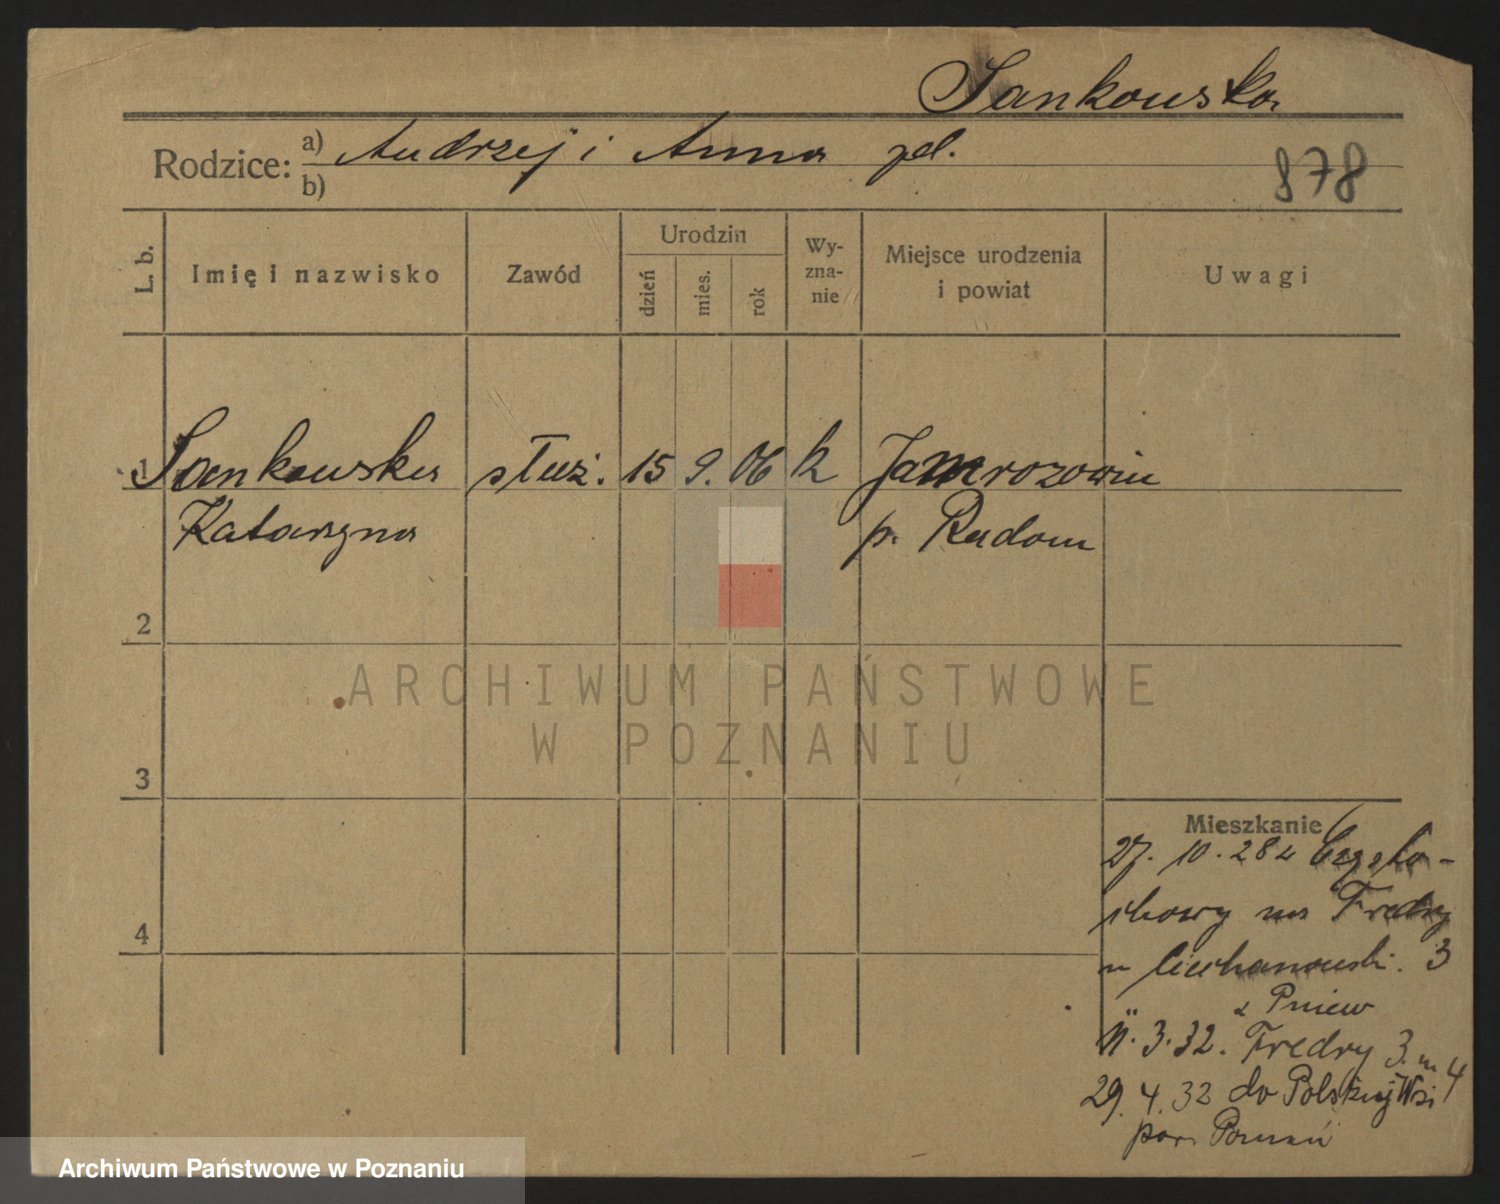 Sankowska
Rodzice: a) Andrzej i Anna pd.
b)
878
L. b.
Imię i nazwisko
Zawód
Urodzin
dzień
mies.
rok
Wy-
zna-
nie
Miejsce urodzenia
i powiat
Uwagi
1 Sankowska służ. 15 9. 06 k Jamrozowiu
Katarzyna p. Radom
2
ARCHIWUM PAŃSTWOWE
W POZNANIU
3
Mieszkanie
27. 10. 28 z Często-
chowy na Fredry
u Ciechanowski. 3
z Pniew
11. 3. 32. Fredry 3. m 4
4
29. 4. 32 do Polskiej Wsi
pow. Poznań
Archiwum Państwowe w Poznaniu